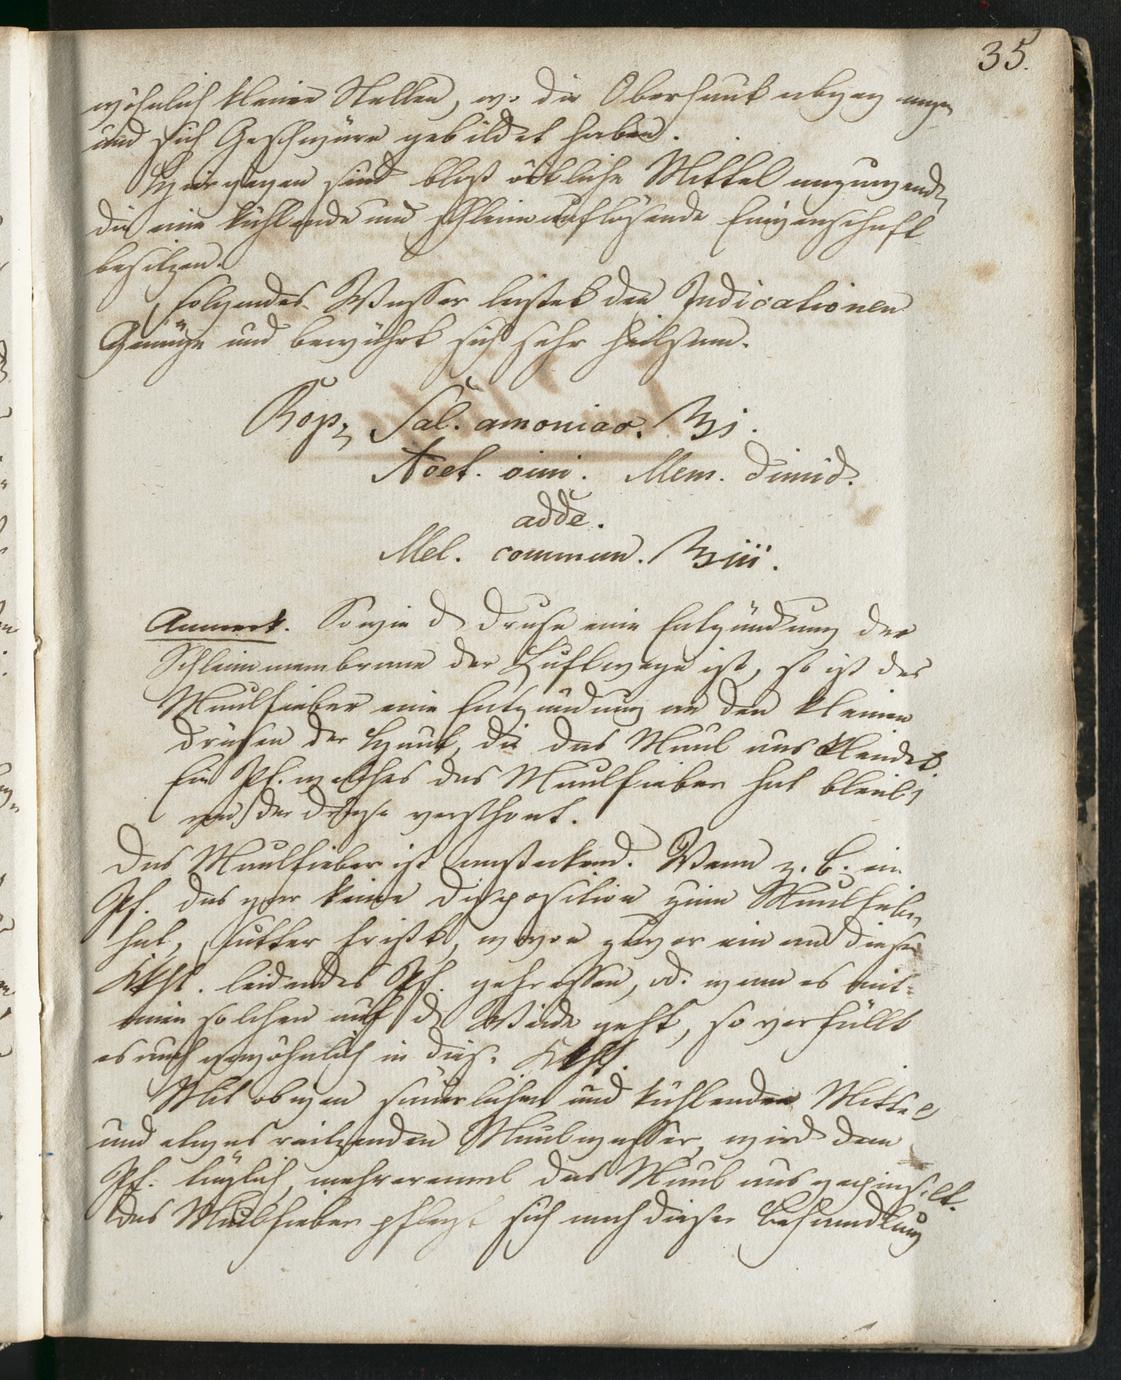 35.
wöhnlich kleine Stellen, wo die Oberhaut abgegangen
und sich Geschwüre gebildet haben.
Hiergegen sind bloß örtliche Mittel anzuwenden,
die eine kühlende und schleimauflösende Eigenschaft
besitzen.
Folgendes Wasser leistet den Indicationen
Genüge und bewährt sich sehr heilsam.
Rcp. Sal. amoniac. ℥j.
Acet. vini. Mens. dimid.
adde.
Mel. commun. ℥iii.
Anmerk. Sowie d. Druse eine Entzündung der
Schleimmembrane der Luftwege ist, so ist das
Maulfieber eine Entzündung an den kleinen
Drüsen der Haut, die das Maul auskleidet.
Ein Pf. welches das Maulfieber hat bleibt
von der Druse verschont.
Das Maulfieber ist ansteckend. Wenn z. B. ein
Pf. das gar keine Disposition zum Maulfieber
hat, Futter frißt, wovon zuvor ein an dieser
Kkht. leidendes Pf. gefressen, od. wenn es mit
einem solchen auf d. Weide geht, so verfällt
es auch gewöhnlich in dies. Kkht.
Mit obigen säuerlichen und kühlenden Mittel
und etwas reitzenden Maulwasser, wird dem
Pf. täglich mehreremal das Maul ausgepinselt.
Das Maulfieber pflegt sich nach dieser Behandlung